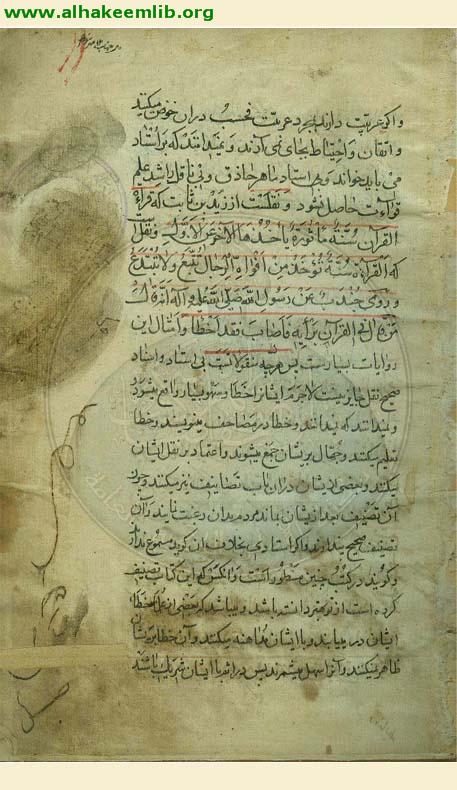 www.alhakeemlib.org
و اگر عربیت دارند بمجرد عربیت فحسب در ان خوض میکنند
و اتقان و احتیاط بجای نمی آرند و نمیدانند که بر استاد
می باید خواند و بی استاد ماهر حاذق و بی ناقل باشد علم
قراءت حاصل نشود و نقلست از زید بن ثابت که قراءة
القرآن سنة مأثورة یأخذها الآخر عن الاول و نقل
که القراءة سنة تؤخذ من افواه الرجال تتبع ولا تبتدع
و روی جندب عن رسول الله صلی الله علیه و آله انه قال
من قال فی القرآن برأیه فاصاب فقد اخطا و امثال این
روایات بسیارست پس هرچه منقولاتست بی استاد و اسناد
صحیح نقل جایز نیست لاجرم ایشانرا خطا و سهو بسیار واقع میشود
و نمیدانند که بدانند و خطا در مصاحف مینویسند و خطا
تعلیم میکنند و جهال بریشان جمع میشوند و اعتماد بر نقل ایشان
میکنند و بعضی از یشان در ان باب تصانیف نیز میکنند و چون
آن تصنیف بعد از یشان بماند مردم بدان رغبت نمایند و آن
تصنیف صحیح پندارند و اگر استادی بخلاف ان گوید مسموع ندارند
و گویند در کتب چنین مسطور است و آنکس که این کتاب تصنیف
کرده است از تو بهتر دانسته باشد و میباشد که بعضی از علما خطا
ایشان در مییابند و با ایشان مداهنه میکنند و آن خطا بریشان
ظاهر نمیکنند و آنرا سهل میشمرند پس در اثم با ایشان شریک باشند